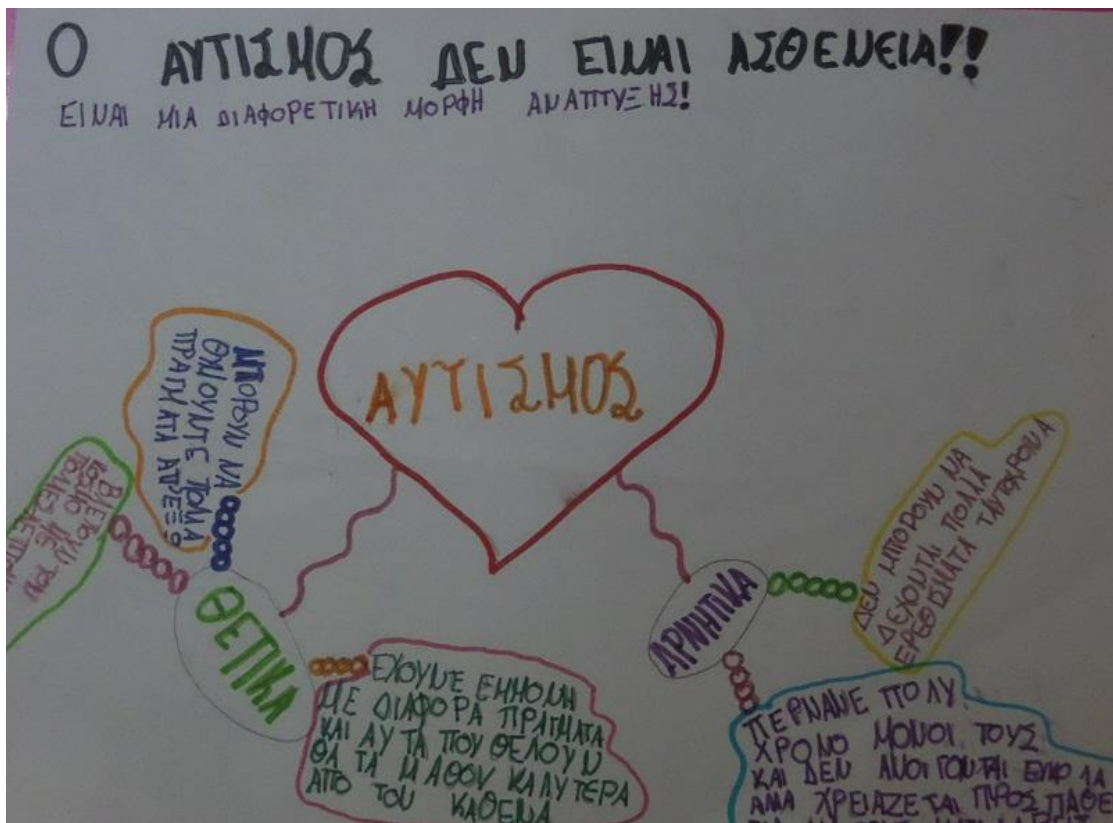 Ο ΑΥΤΙΣΜΟΣ ΔΕΝ ΕΙΝΑΙ ΑΣΘΕΝΕΙΑ!!
ΕΙΝΑΙ ΜΙΑ ΔΙΑΦΟΡΕΤΙΚΗ ΜΟΡΦΗ ΑΝΑΠΤΥΞΗΣ!
ΑΥΤΙΣΜΟΣ
ΘΕΤΙΚΑ
ΜΠΟΡΟΥΝ ΝΑ
ΠΡΑΓΜΑΤΑ
ΒΛΕΠΟΥΝ ΤΟΝ
ΚΟΣΜΟ ΜΕ
ΕΧΟΥΝΕ ΕΜΜΟΝΗ
ΜΕ ΔΙΑΦΟΡΑ ΠΡΑΓΜΑΤΑ
ΚΑΙ ΑΥΤΑ ΠΟΥ ΘΕΛΟΥΝ
ΘΑ ΤΑ ΜΑΘΟΥΝ ΚΑΛΥΤΕΡΑ
ΑΠΟ ΤΟΝ ΚΑΘΕΝΑ
ΑΡΝΗΤΙΚΑ
ΔΕΝ ΜΠΟΡΟΥΝ ΝΑ
ΔΕΧΟΝΤΑΙ ΠΟΛΛΑ
ΕΡΕΘΙΣΜΑΤΑ ΤΑΥΤΟΧΡΟΝΑ
ΠΕΡΝΑΝΕ ΠΟΛΥ
ΧΡΟΝΟ ΜΟΝΟΙ ΤΟΥΣ
ΚΑΙ ΔΕΝ ΑΝΟΙΓΟΝΤΑΙ
ΑΜΑ ΧΡΕΙΑΖΕΤΑΙ ΠΡΟΣΠΑΘΕ